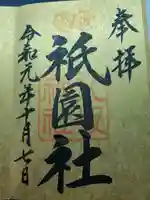 奉拝
祇園社
令和元年十月七日